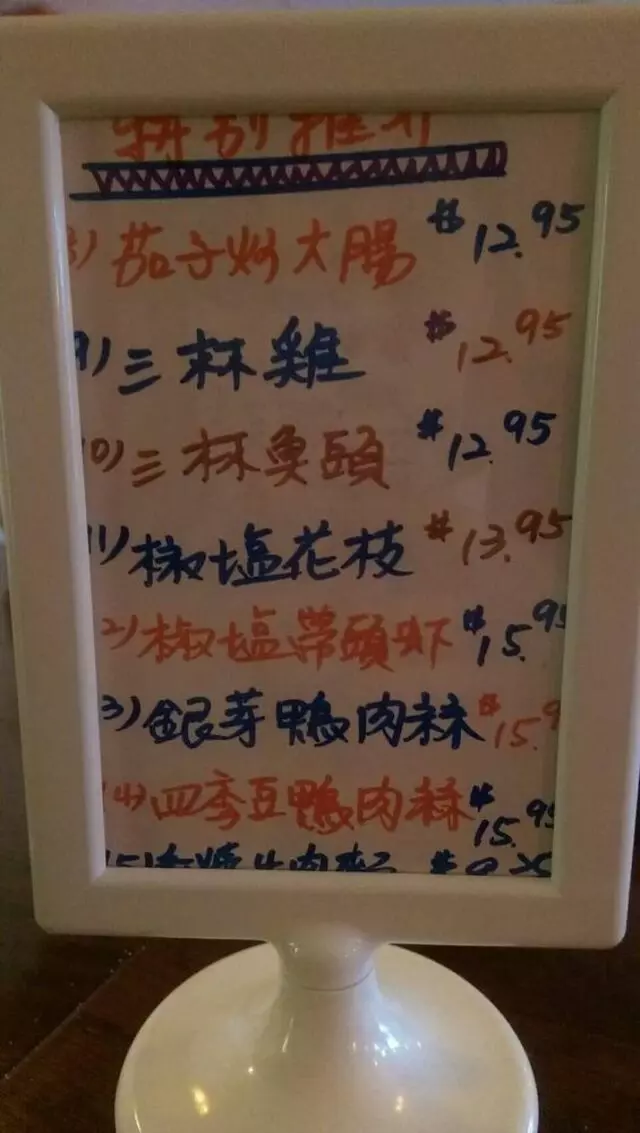 特別推介
8) 茄子炒大腸 $12.95
9) 三杯雞 $12.95
10) 三杯魚頭 $12.95
11) 椒塩花枝 $13.95
2) 椒塩帶頭虾 $15.95
3) 銀芽鴨肉絲 $15.9
14) 四季豆鴨肉絲 $15.95
15) 牛肉